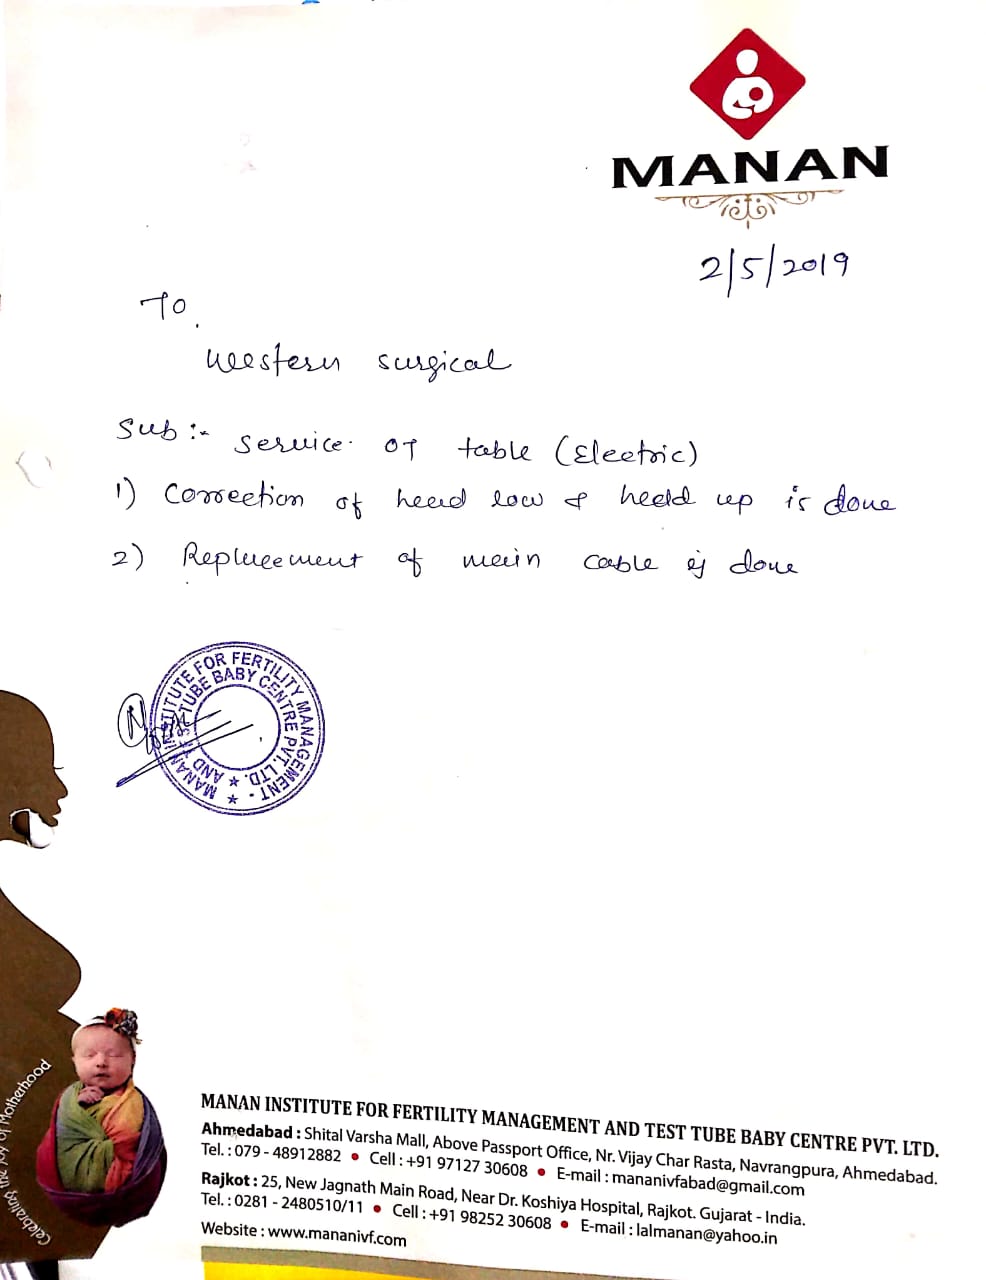 MANAN
2/5/2019
To,
Western surgical
Sub :- Service OT table (Electric)
1) Correction of head low & head up is done
2) Replacement of main cable is done
MANAN INSTITUTE FOR FERTILITY MANAGEMENT -
AND TEST TUBE BABY CENTRE PVT. LTD.
Celebrating the Joy of Motherhood
MANAN INSTITUTE FOR FERTILITY MANAGEMENT AND TEST TUBE BABY CENTRE PVT. LTD.
Ahmedabad : Shital Varsha Mall, Above Passport Office, Nr. Vijay Char Rasta, Navrangpura, Ahmedabad.
Tel. : 079 - 48912882 • Cell : +91 97127 30608 • E-mail : mananivfabad@gmail.com
Rajkot : 25, New Jagnath Main Road, Near Dr. Koshiya Hospital, Rajkot. Gujarat - India.
Tel. : 0281 - 2480510/11 • Cell : +91 98252 30608 • E-mail : lalmanan@yahoo.in
Website : www.mananivf.com